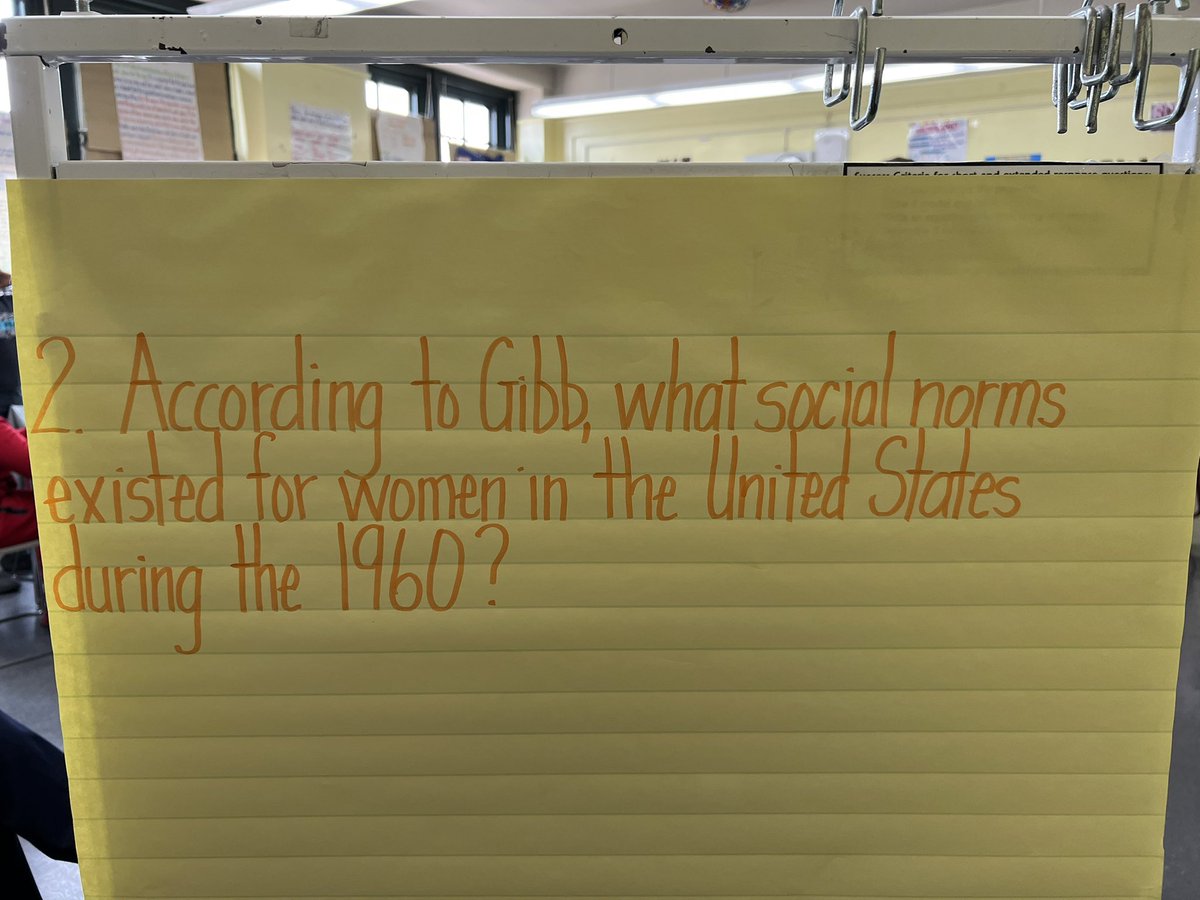 Success Criteria for short and extended response questions:
2. According to Gibb, what social norms
existed for women in the United States
during the 1960?